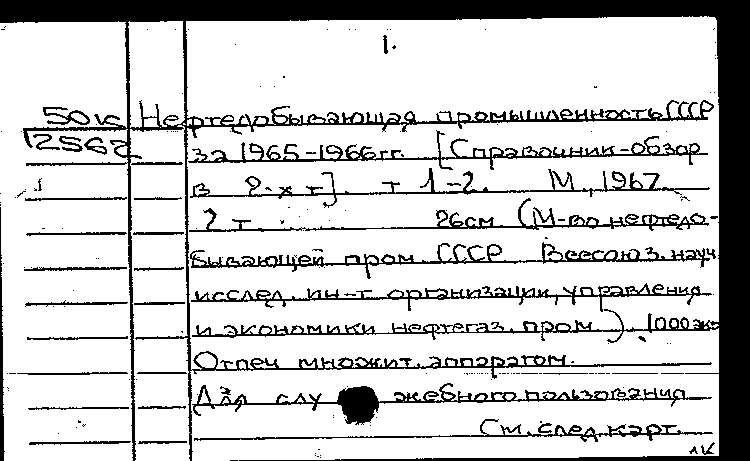 1.
50к Нефтедобывающая промышленность СССР
12562 за 1965-1966гг. [Справочник-обзор
в 2-х т]. т 1-2. М., 1967.
2 т. 26см. (М-во нефтедо-
бывающей пром. СССР Всесоюз. науч
исслед. ин-т организации, управления
и экономики нефтегаз. пром.). 1000 экз
Отпеч множит. аппаратом.
Для служебного пользования
См. след. карт.